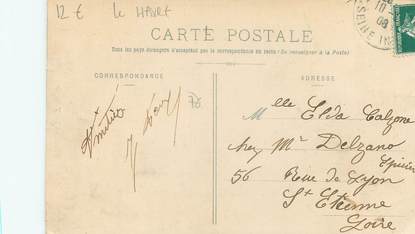 12 € Le HAVRE
CARTE POSTALE
Tous les pays étrangers n'acceptent pas la correspondance au recto. (Se renseigner à la Poste)
CORRESPONDANCE
ADRESSE
76
Amitiés
Melle Elda Calzone
chez Mr Delzano
Epicier
56 Rue de Lyon
St Etienne
Loire
10
08
SEINE IN